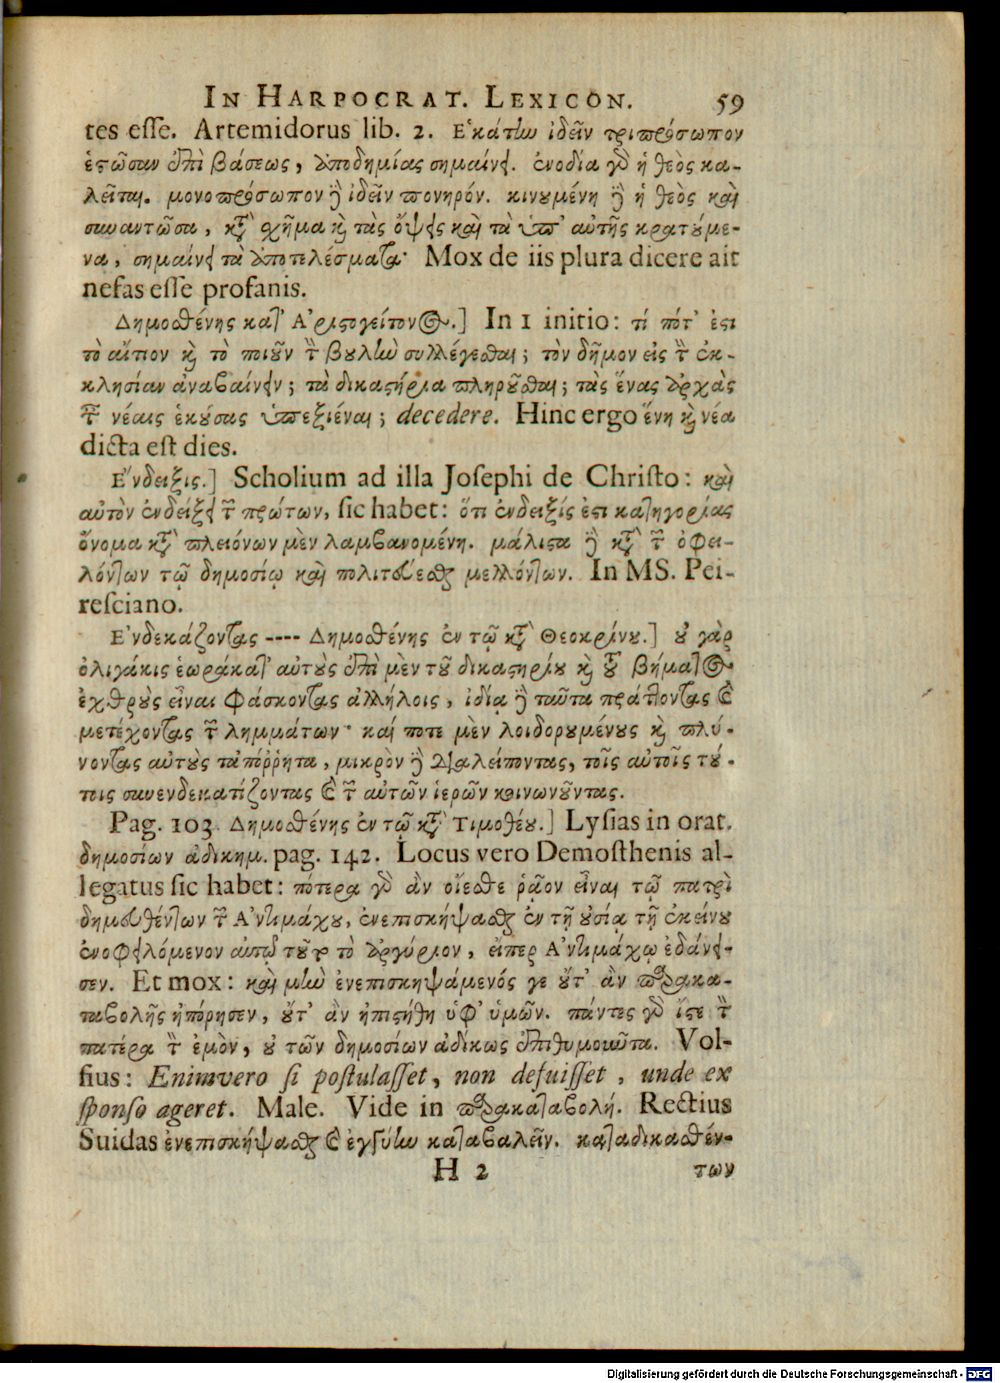 IN HARPOCRAT. LEXICON. 59
tes esse. Artemidorus lib. 2. Ἑκάτην ἰδεῖν τριπρόσωπον
ἑστῶσαν ἐπὶ βάσεως, ἀποδημίας σημαίνει. ἐνοδία γὸ ἡ θεὸς κα-
λεῖται. μονοπρόσωπον ἢ ἰδεῖν πονηρόν. κινουμένη ἢ ἡ θεὸς καὶ
συναντῶσα, κατὰ σχῆμα καὶ τὰς ὄψεις καὶ τὰ ὑπ' αὐτῆς κρατούμε-
να, σημαίνει τὰ ἀποτελέσματα· Mox de iis plura dicere ait
nefas esse profanis.
Δημοσθένης κατ' Ἀριστογείτονος.] In 1 initio: τί πότ' ἐστι
τὸ αἴτιον καὶ τὸ ποιοῦν τὴν βουλὴν συλλέγεσθαι; τὸν δῆμον εἰς τὴν ἐκ-
κλησίαν ἀναβαίνειν; τὰ δικαστήρια πληροῦσθαι; τὰς ἕνας ἀρχὰς
ταῖς νέαις ἑκούσας ὑπεξιέναι; decedere. Hinc ergo ἕνη καὶ νέα
dicta est dies.
Ἔνδειξις.] Scholium ad illa Josephi de Christo: καὶ
αὐτὸν ἐνδείξει τῶν πρώτων, sic habet: ὅτι ἐνδειξίς ἐστι κατηγορίας
ὄνομα κατὰ πλειόνων μὲν λαμβανομένη. μάλιστα δὲ κατὰ τῶν ὀφει-
λόντων τῷ δημοσίῳ καὶ πολιτεύεσθαι μελλόντων. In MS. Pei-
resciano.
Ἐνδεκάζοντας ---- Δημοσθένης ἐν τῷ κατὰ Θεοκρίνου.] οὐ γὰρ
ὀλιγάκις ἑωράκατ' αὐτοὺς ἐπὶ μὲν τοῦ δικαστηρίου καὶ τοῦ βήματος
ἐχθροὺς εἶναι φάσκοντας ἀλλήλοις, ἰδίᾳ δὲ ταῦτα πράττοντας καὶ
μετέχοντας τῶν λημμάτων· καί ποτε μὲν λοιδορουμένους καὶ πλύ-
νοντας αὐτοὺς τἀπόῤῥητα, μικρὸν δὲ διαλείποντας, τοῖς αὐτοῖς τού-
τοις συνενδεκατίζοντας καὶ τῶν αὐτῶν ἱερῶν κοινωνοῦντας.
Pag. 103. Δημοσθένης ἐν τῷ κατὰ Τιμοθέου.] Lysias in orat.
δημοσίων ἀδικημ. pag. 142. Locus vero Demosthenis al-
legatus sic habet: πότερα γὸ ἂν οἴεσθε ῥᾷον εἶναι τῷ πατρὶ
δημευθέντων τῶν Ἀντιμάχου, ἐνεπισκήψασθαι ἐν τῇ οὐσίᾳ τῇ ἐκείνου
ἐνοφειλόμενον αὐτῷ τοῦτο τὸ ἀργύριον, εἴπερ Ἀντιμάχῳ ἐδάνει-
σεν. Et mox: καὶ μὴν ἐνεπισκηψάμενός γε οὔτ' ἂν παρακα-
ταβολῆς ἠπόρησεν, οὔτ' ἂν ἠπιστήθη ὑφ' ὑμῶν. πάντες γὸ ἴστε τὸν
πατέρα τὸν ἐμὸν, οὐ τῶν δημοσίων ἀδίκως ἐπιθυμοῦντα. Vol-
fius: Enimvero si postulasset, non defuisset, unde ex
sponso ageret. Male. Vide in παρακαταβολή. Rectius
Suidas ἐνεπισκήψασθαι καὶ ἐγγύην καταβαλεῖν. καταδικασθέν-
H 2 των
Digitalisierung gefördert durch die Deutsche Forschungsgemeinschaft - DFG